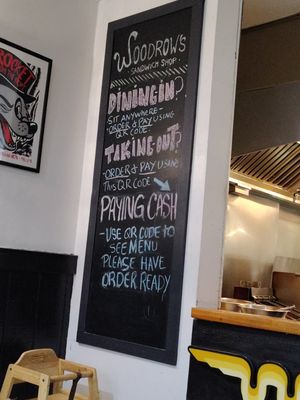 WOODROWS
SANDWICH SHOP.
DINING IN?
SIT ANYWHERE -
ORDER & PAY USING
QR CODE.
TAKING OUT?
ORDER & PAY USING
THIS QR CODE
PAYING CASH
- USE QR CODE TO
SEE MENU
PLEASE HAVE
ORDER READY
ROCKET